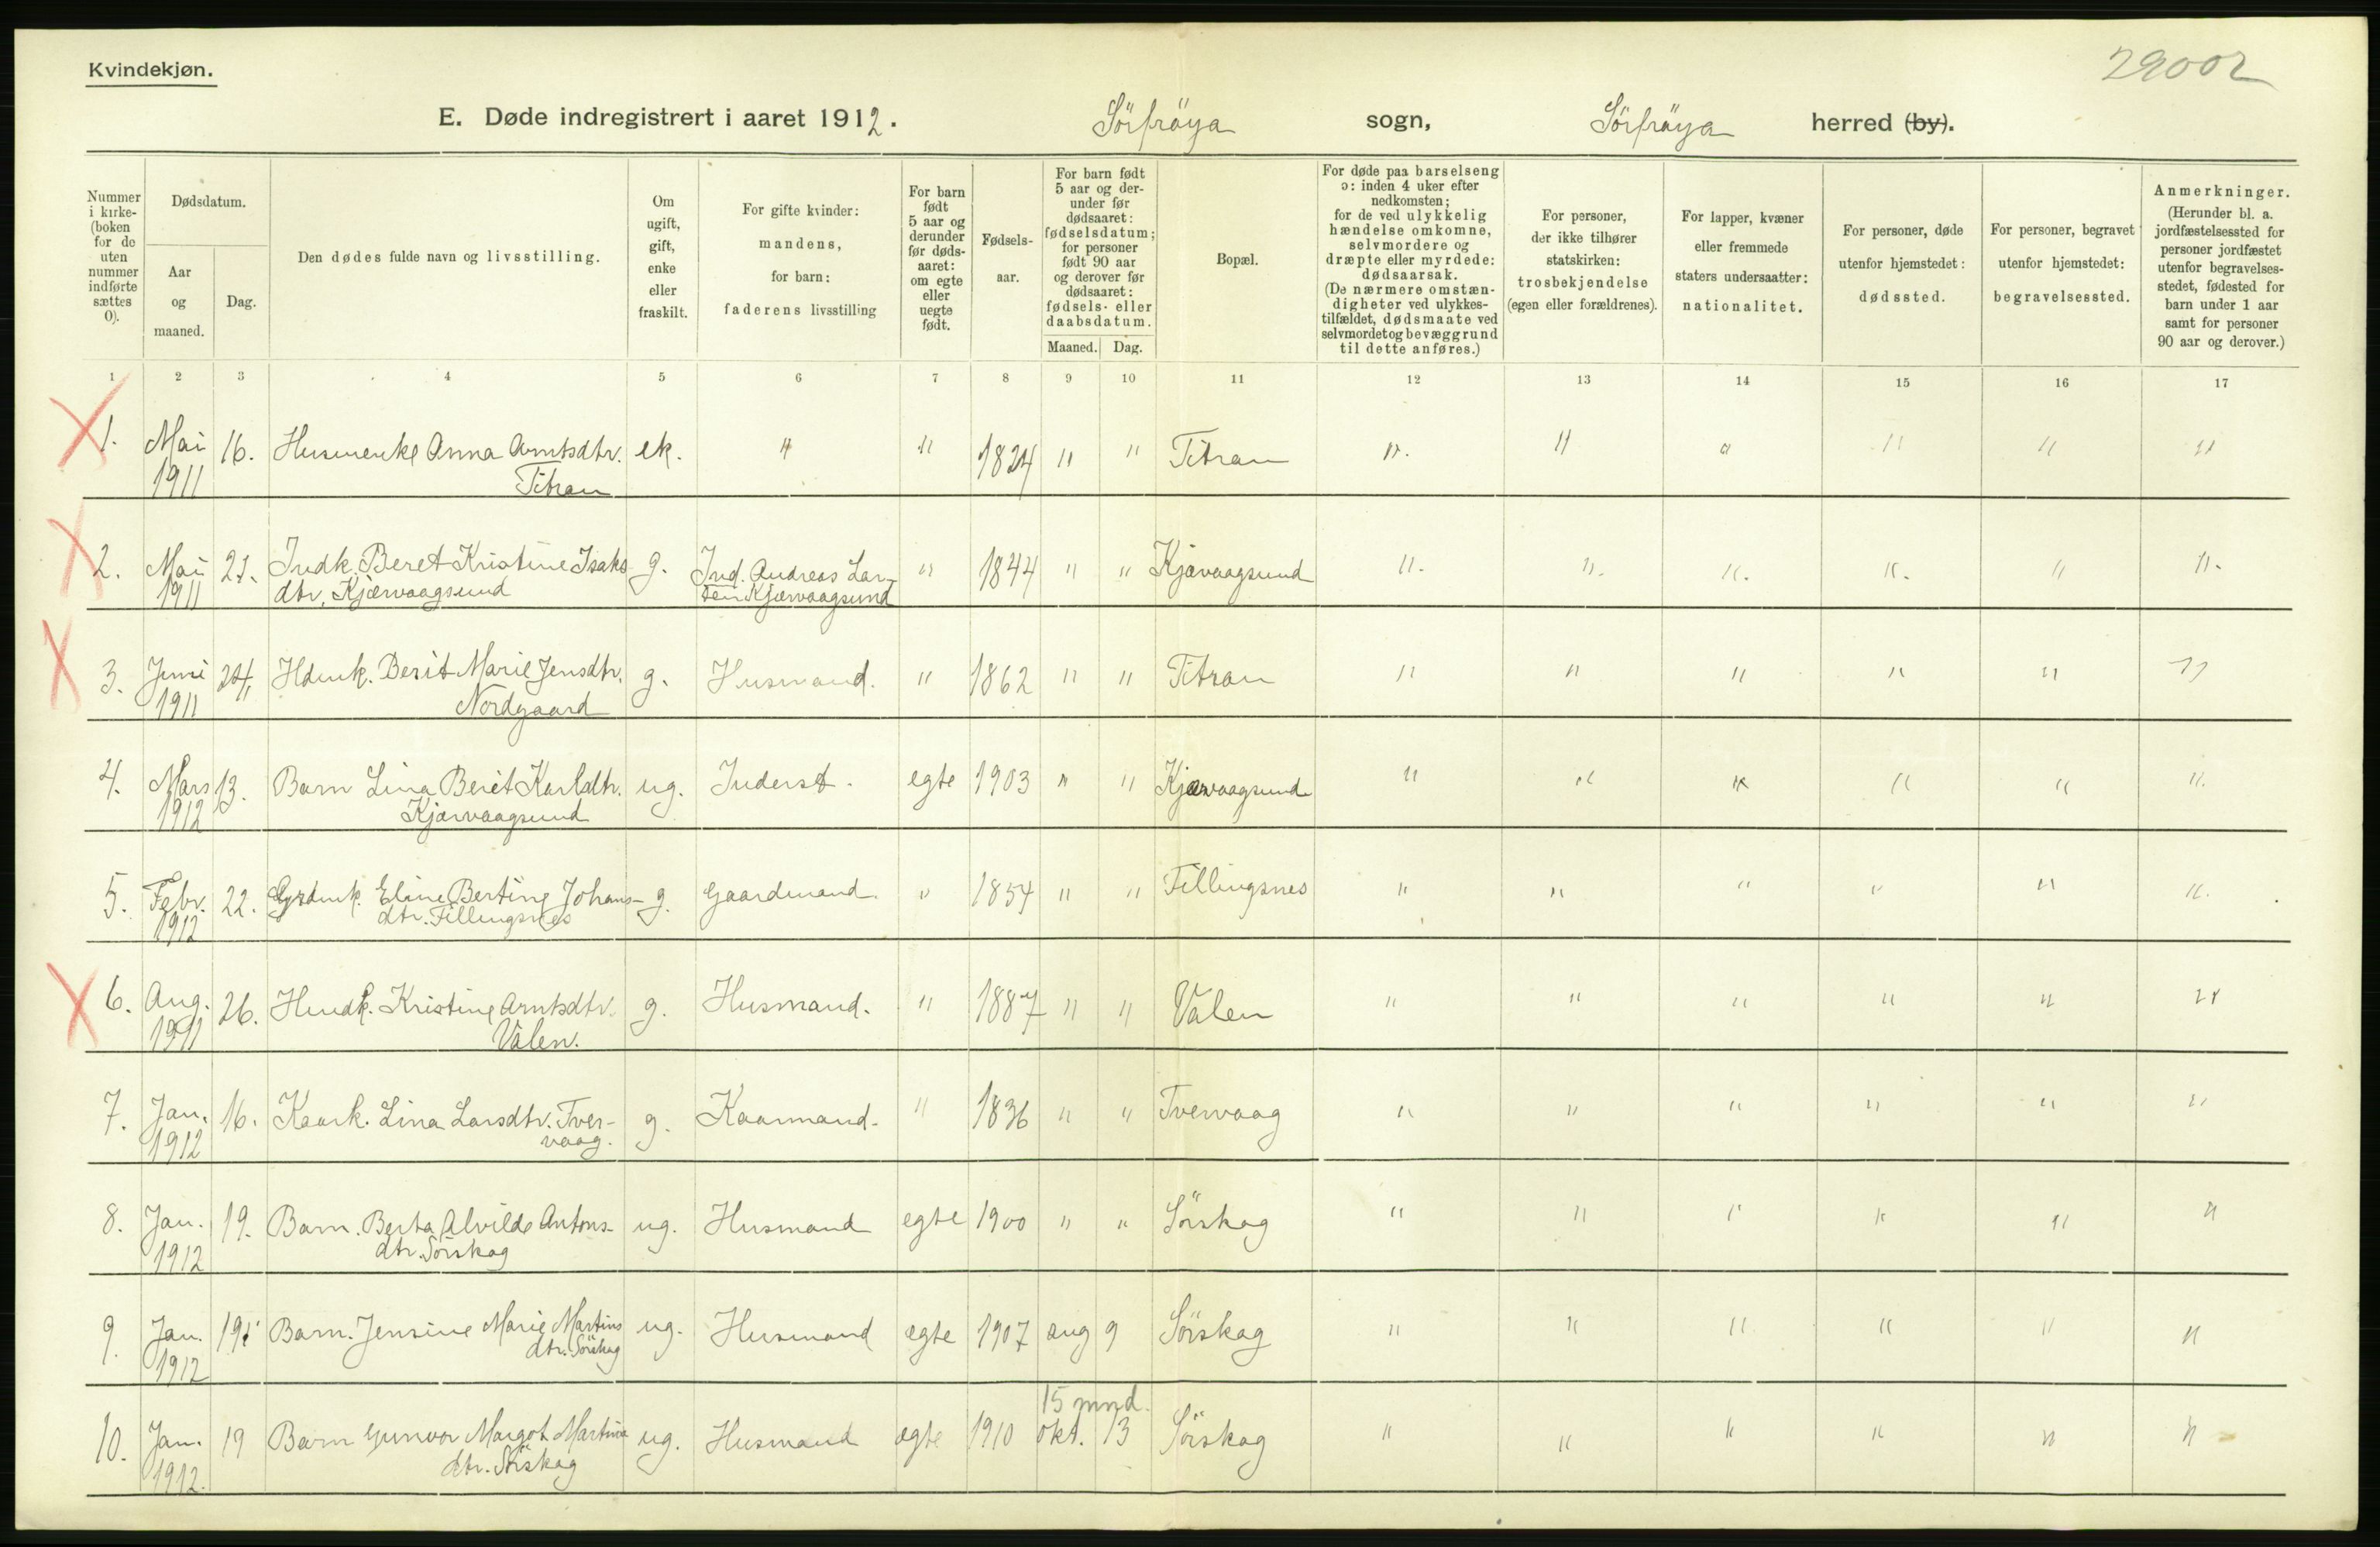 Kvindekjøn.
29002
E. Døde indregistrert i aaret 1912. Sörfröya sogn, Sörfröya herred (by).
Nummer i kirke- (boken for de uten nummer indførte sættes 0).
Dødsdatum.
Aar og maaned.
Dag.
Den dødes fulde navn og livsstilling.
Om ugift, gift, enke eller fraskilt.
For gifte kvinder: mandens, for barn: faderens livsstilling
For barn født 5 aar og derunder før døds- aaret: om egte eller uegte født.
Fødsels- aar.
For barn født 5 aar og der- under før dødsaaret: fødselsdatum; for personer født 90 aar og derover før dødsaaret: fødsels- eller daabsdatum.
Maaned. Dag.
Bopæl.
For døde paa barselseng ɔ: inden 4 uker efter nedkomsten; for de ved ulykkelig hændelse omkomne, selvmordere og dræpte eller myrdede: dødsaarsak. (De nærmere omstæn- digheter ved ulykkes- tilfældet, dødsmaate ved selvmordet og bevæggrund til dette anføres.)
For personer, der ikke tilhører statskirken: trosbekjendelse (egen eller forældrenes).
For lapper, kvæner eller fremmede staters undersaatter: nationalitet.
For personer, døde utenfor hjemstedet: dødssted.
For personer, begravet utenfor hjemstedet: begravelsessted.
Anmerkninger. (Herunder bl. a. jordfæstelsessted for personer jordfæstet utenfor begravelses- stedet, fødested for barn under 1 aar samt for personer 90 aar og derover.)
1 2 3 4 5 6 7 8 9 10 11 12 13 14 15 16 17
1. Mai 16. Husmenke Anna Arntsdtr. ek. " " 1824 " " Titran " " " " " "
1911 Titran
2. Mai 21. Indk. Beret Kristine Isaks g. Ind. Andreas Lar- " 1844 " " Kjævaagsund " " " " " "
1911 dtr. Kjærvaagsund sen Kjærvaagsund
3. Juni 24. Hdmk. Berit Marie Jensdtr. g. Husmand. " 1862 " " Titran " " " " " "
1911 Nordgaard
4. Mars 13. Barn Lina Berit Karldtr. ug. Inderst. egte 1903 " " Kjærvaagsund " " " " " "
1912 Kjærvaagsund
5. Febr. 22. Grdmk. Eline Bertine Johans- g. Gaardmand " 1854 " " Fillingsnes " " " " " "
1912 dtr. Fillingsnes
6. Aug. 26. Hmdk. Kristine Arntsdtr. g. Husmand. " 1887 " " Valen " " " " " "
1911 Valen.
7. Jan. 16. Kaark. Lina Larsdtr. Tver- g. Kaarmand. " 1836 " " Tvervaag " " " " " "
1912 vaag.
8. Jan. 19. Barn. Berta Alvilde Antons- ug. Husmand egte 1900 " " Sörskag " " " " " "
1912 dtr. Sörskag
9. Jan. 19. Barn. Jensine Marie Martins ug. Husmand egte 1907 aug 9 Sörskag " " " " " "
1912 dtr. Sörskag
15 mnd.
10. Jan. 19 Barn Gunvor Margot Martins ug. Husmand egte 1910 okt. 13 Sörskag " " " " " "
1912. dtr. Sörskag